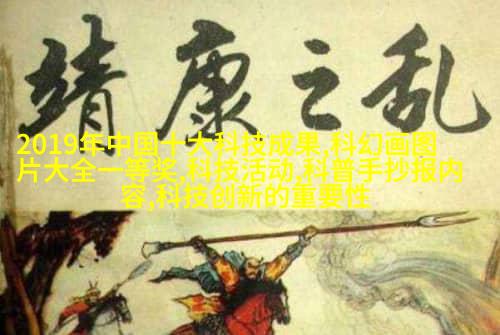 靖康之乱
2019年中国十大科技成果,科幻画图
片大全一等奖,科技活动,科普手抄报内
容,科技创新的重要性